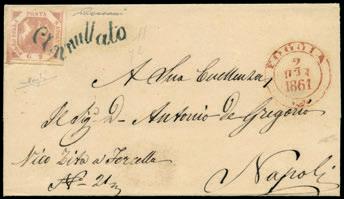 POSTA
Annullato
FOGGIA
2
1861
A Sua Eccellenza
Il Sig. D. Antonio de Gregorio
Vico Zita a Forcella
Nº 21
Napoli